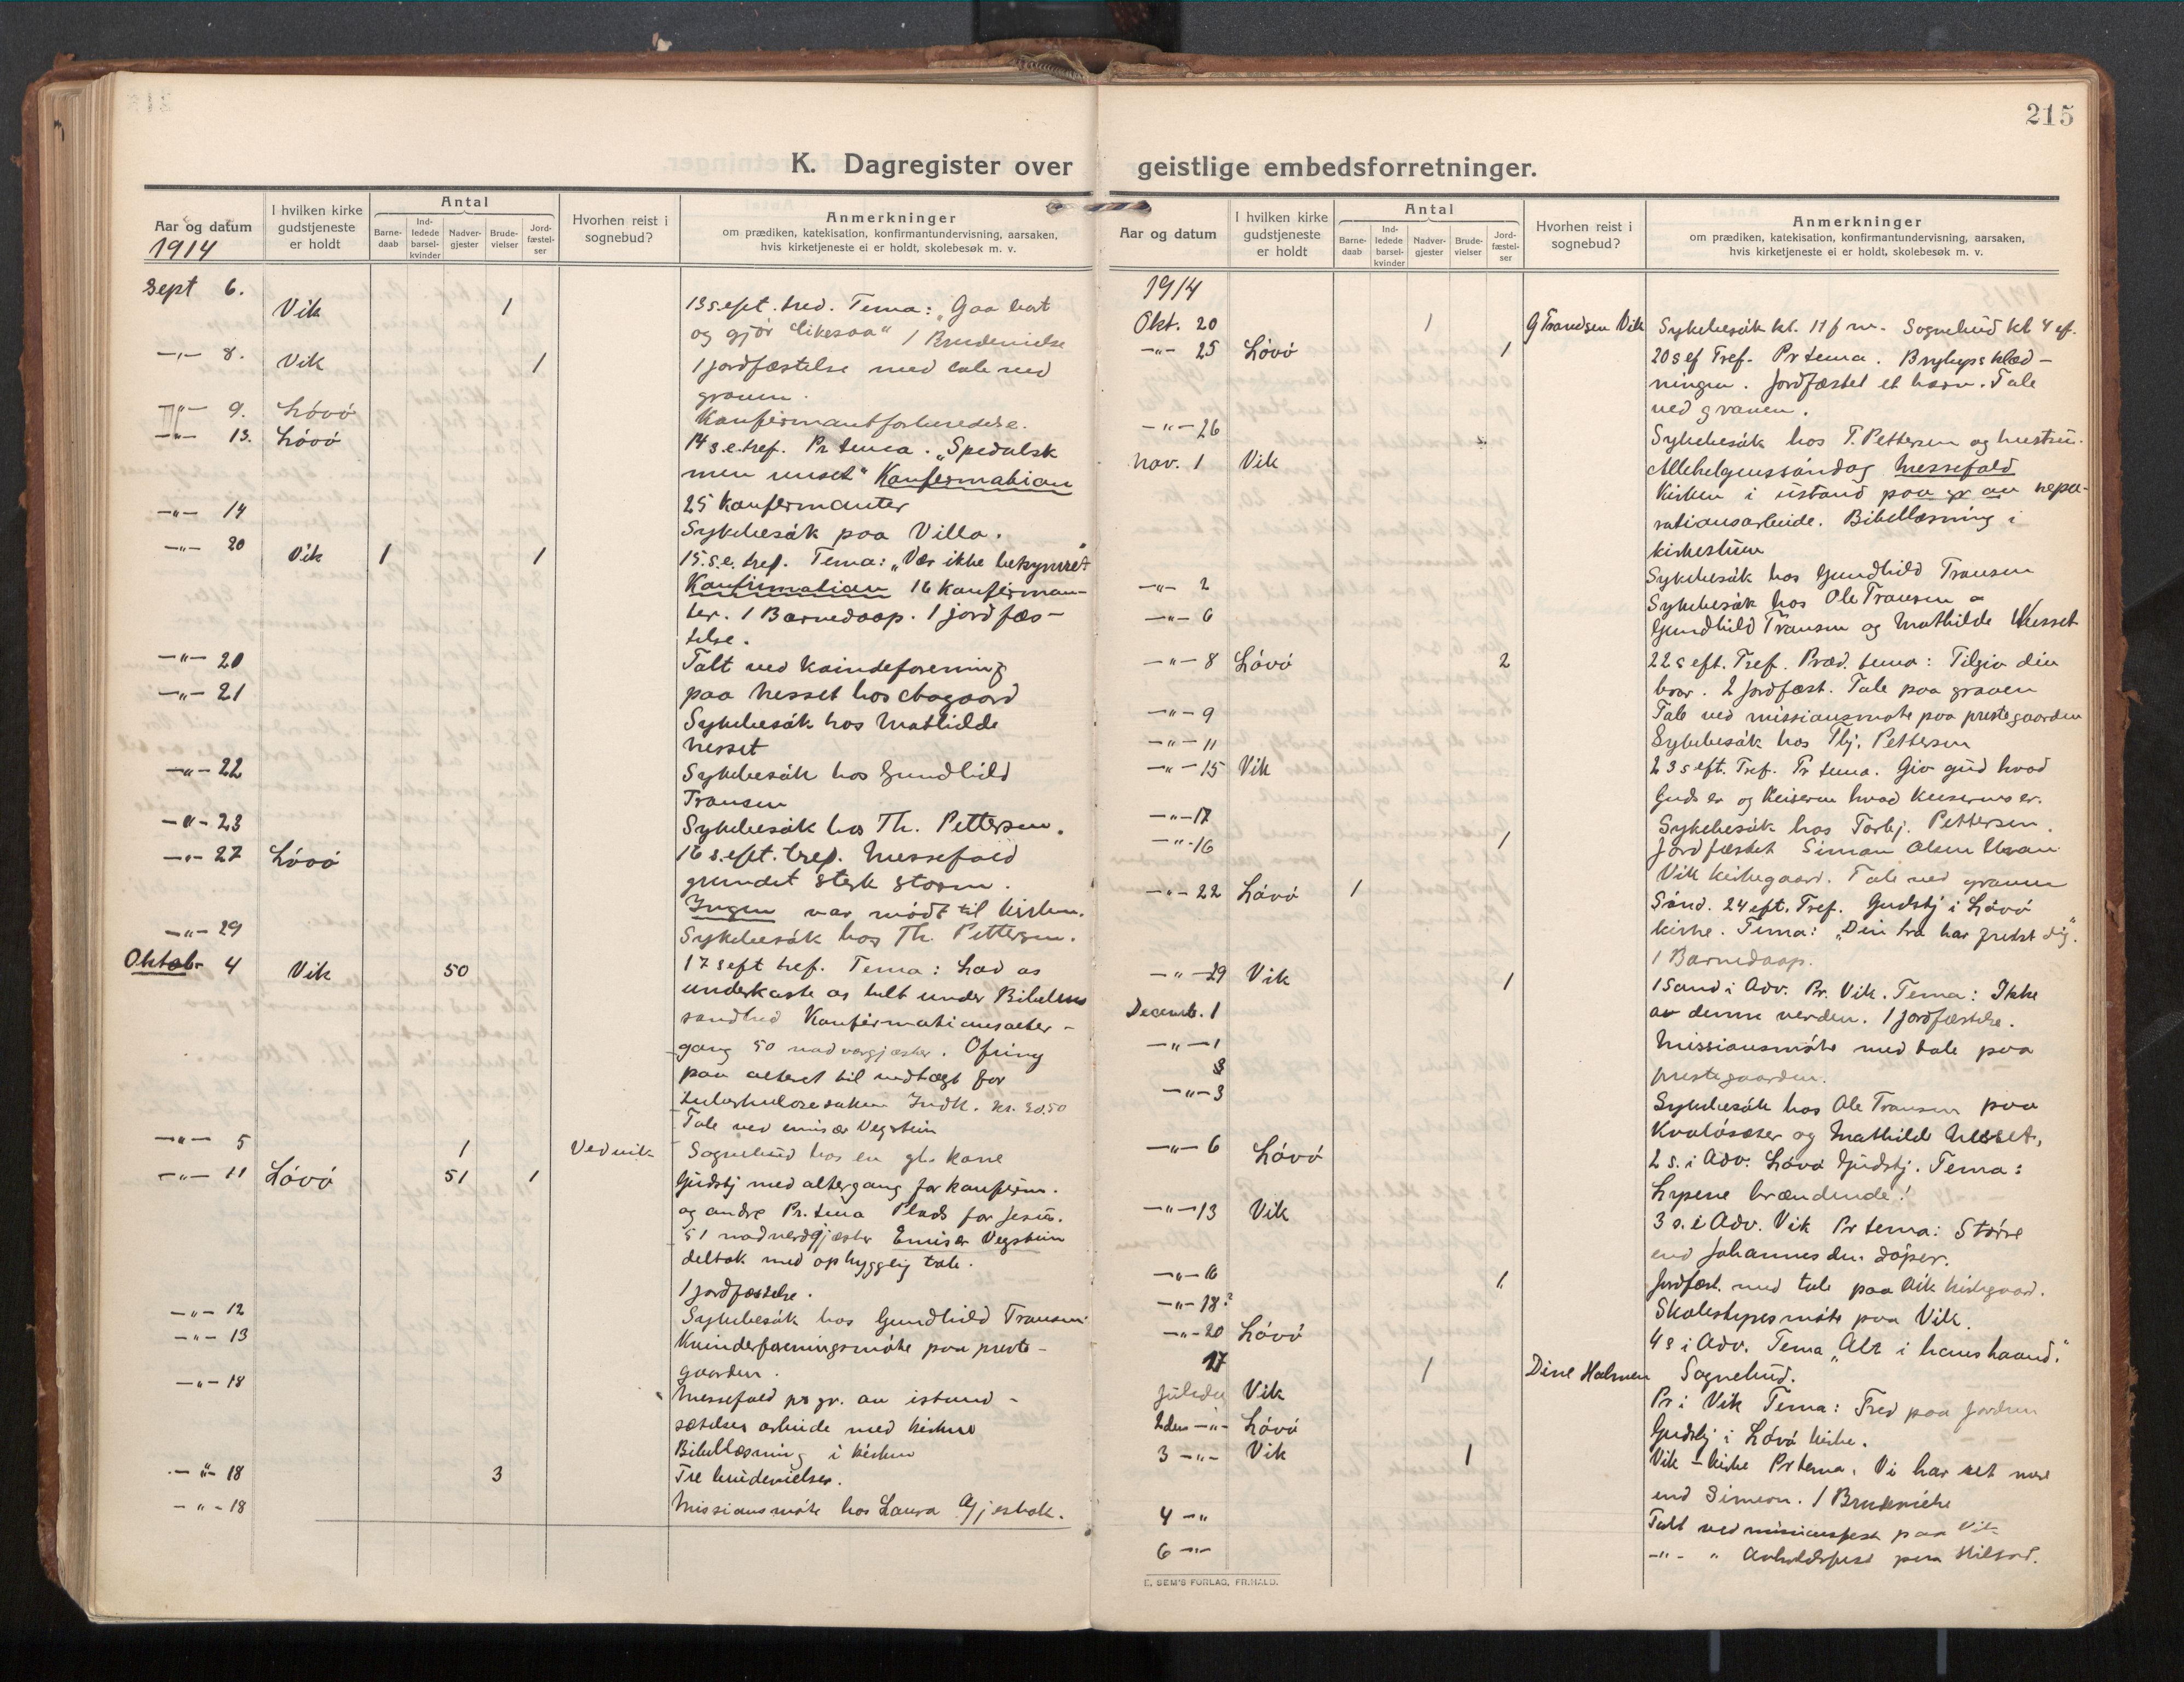 215
K. Dagregister over geistlige embedsforretninger.
Aar og datum
I hvilken kirke gudstjeneste er holdt
Antal
Barne-daab
Ind-ledede barsel-kvinder
Nadver-gjester
Brude-vielser
Jord-fæstel-ser
Hvorhen reist i sognebud?
Anmerkninger
om prædiken, katekisation, konfirmantundervisning, aarsaken,
hvis kirketjeneste ei er holdt, skolebesøk m. v.
1914
Sept 6. Vik 1 13 s.eft. tref. Tema: "Gaa bort
og gjør likesaa" 1 Brudevielse
—"— 8. Vik 1 1 jordfæstelse med tale ved
graven.
—"— 9. Lóvó Konfirmantforberedelse.
—"— 13. Lóvó 14 s.e.tref. Pr tema. "Spedalsk
men renset" Konfirmation
25 Konfirmanter
—"— 14 Sykebesók paa Villa.
—"— 20 Vik 1 1 15.s.e. tref. Tema: "Vær ikke bekymret
Konfirmation 16 Konfirman-
ter. 1 Barnedaap. 1 jordfæs-
telse.
—"— 20 Talt ved Kvindeforening
—"— 21 paa Nesset hos
Sykebesók hos Mathilde
Nesset
—"— 22 Sykebesók hos Gundhild
Transen
—"— 23 Sykebesók hos Th. Pettersen.
—"— 27 Lóvó 16 s.eft. tref. Messefald
grundet sterk storm.
Ingen var módt til kirken.
—"— 29 Sykebesók hos Th. Pettersen.
Oktob- 4 Vik 50 17 s eft tref. Tema: Lad os
underkaste os helt under Bibelens
sandhed Konfirmationsalter-
gang 50 nadvergjæster. Ofring
paa alteret til indtægt for
tuberkulosesaken Indk. kr. 30.50
Tale ved emisær Vegstein
—"— 5 1 Vednik Sognebud hos en gl. kone
—"— 11 Lóvó 51 1 Gudstj med altergang for konfirm.
og andre Pr. tema Plads for Jesus.
51 nadverdgjæster Emisær Vegstein
deltok med opbyggelig tale.
1 jordfæstelse.
—"— 12 Sykebesók hos Gundhild Transen
—"— 13 Kvinderforeningsmóte paa preste-
gaarden.
—"— 18 Messefald pr gr. av istand-
sættelses arbeide med kirken
Bibellæsning i kirken
—"— 18 3 Tre brudevielser.
—"— 18 Missionsmóte hos Laura Gjesbak.
Aar og datum
I hvilken kirke gudstjeneste er holdt
Antal
Barne-daab
Ind-ledede barsel-kvinder
Nadver-gjester
Brude-vielser
Jord-fæstel-ser
Hvorhen reist i sognebud?
Anmerkninger
om prædiken, katekisation, konfirmantundervisning, aarsaken,
hvis kirketjeneste ei er holdt, skolebesøk m. v.
1914
Okt. 20 1 G Trandsen Vik Sykebesók kl. 11 f m. Sognebud kl 4 ef.
—"— 25 Lóvó 1 20 s ef Tref. Pr tema. Bryllupsklæd-
ningen. Jordfæstet et barn. Tale
ved graven.
—"— 26 Sykebesók hos T. Pettersen og hustru.
Nov. 1 Vik Allehelgenssóndag Messefald
Kirken i ustand paa gr av repa-
rationsarbeide. Bibellæsning i
kirkestuen
—"— 2 Sykebesók hos Gundhild Transen
—"— 6 Sykebesók hos Ole Transen
Gundhild Transen og Mathilde Nesset
—"— 8 Lóvó 2 22 s eft. Tref. Præd. tema: Tilgiv din
bror. 2 jordfæst. Tale paa graven
—"— 9 Tale ved missionsmóte paa prestegaarden
—"— 11 Sykebesók hos Thj. Pettersen
—"— 15 Vik 23 s eft. Tref. Pr tema. Giv gud hvad
Guds er og Keiseren hvad keiserens er.
—"— 17 Sykebesók hos Torbj. Pettersen.
—"— 16 1 Jordfæstet Simon Olsen
Vik Kirkegaard. Tale ved graven
—"— 22 Lóvó 1 Sónd. 24 eft. Tref. Gudstj i Lóvó
kirke. Tema: "Din tro har frelst dig".
1 Barnedaap.
—"— 29 Vik 1 1 sónd i Adv. Pr. Vik. Tema: Ikke
av denne verden. 1 jordfæstelse.
Decemb. 1
—"— 1 Missionsmóte med tale paa
3 prestegaarden.
—"— 3 Sykebesók hos Ole Transen paa
Kvalósæter og Mathilde Nesset,
—"— 6 Lóvó 2 s. i Adv. Lóvó Gudstj. Tema:
Lysene brændende!
—"— 13 Vik 3 s. i Adv. Vik Pr tema: Stórre
end Johannes den dóper.
—"— 16 1 Jordfæst. med tale paa Vik kirkegaard.
—"— 18? Skolestyresmóte paa Vik.
—"— 20 Lóvó 4 s i Adv. Tema "Alt i hans haand."
17 1 Dine Holmen Sognebud.
Juledag Vik Pr i Vik Tema: Fred paa jorden
2den —"— Lóvó Gudstj i Lóvó kirke.
3 —"— Vik 1 Vik — kirke Pr tema. Vi har set mere
end Simeon. 1 Brudevielse
4 —"— Talt ved missionsfest paa Vik
6 —"— —"— " Avholdsfest paa
E. SEM'S FORLAG, FR.HALD.